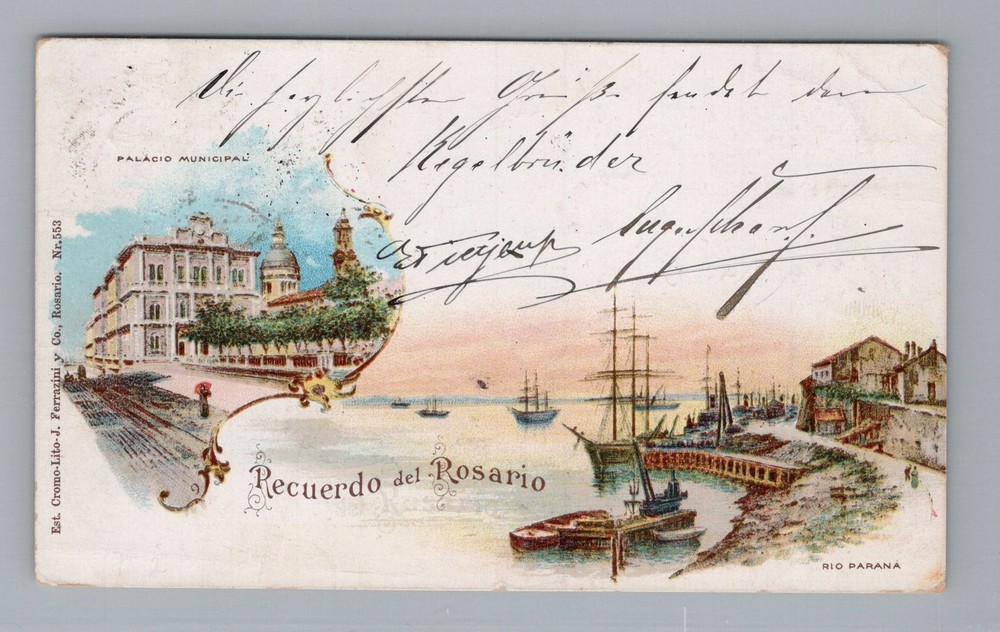 Die herzlichsten Grüße sendet den
Kegelbrüder
PALACIO MUNICIPAL
Est. Cromo-Lito-J. Ferrazini y Co., Rosario. Nr. 553
Recuerdo del Rosario
RIO PARANÁ